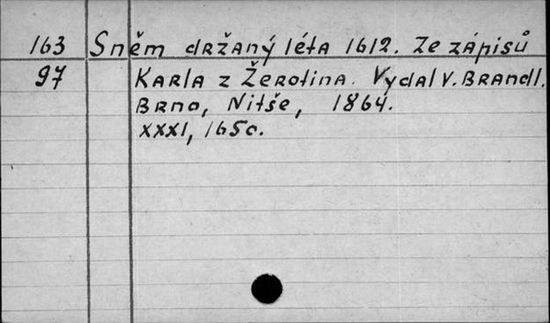 163 Sněm držaný léta 1612. Ze zápisů
97 Karla z Žerotina. Vydal V. Brandl.
Brno, Nitše, 1864.
XXXI, 165 c.